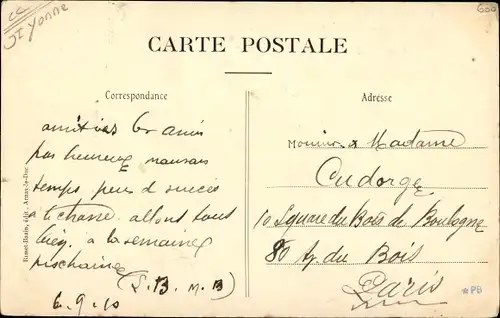 St Yonne
600
CARTE POSTALE
Correspondance
Adresse
amitiés
pas heureux mauvais
temps peu de succès
à la chasse. allons tous
bien. à la semaine
prochaine
(S. B. M. B)
6.9.10
Monsieur & Madame
Cudorge
10 Square du Bois de Boulogne
80 Av. du Bois
Paris
édit. Arnay-le-Duc
PB